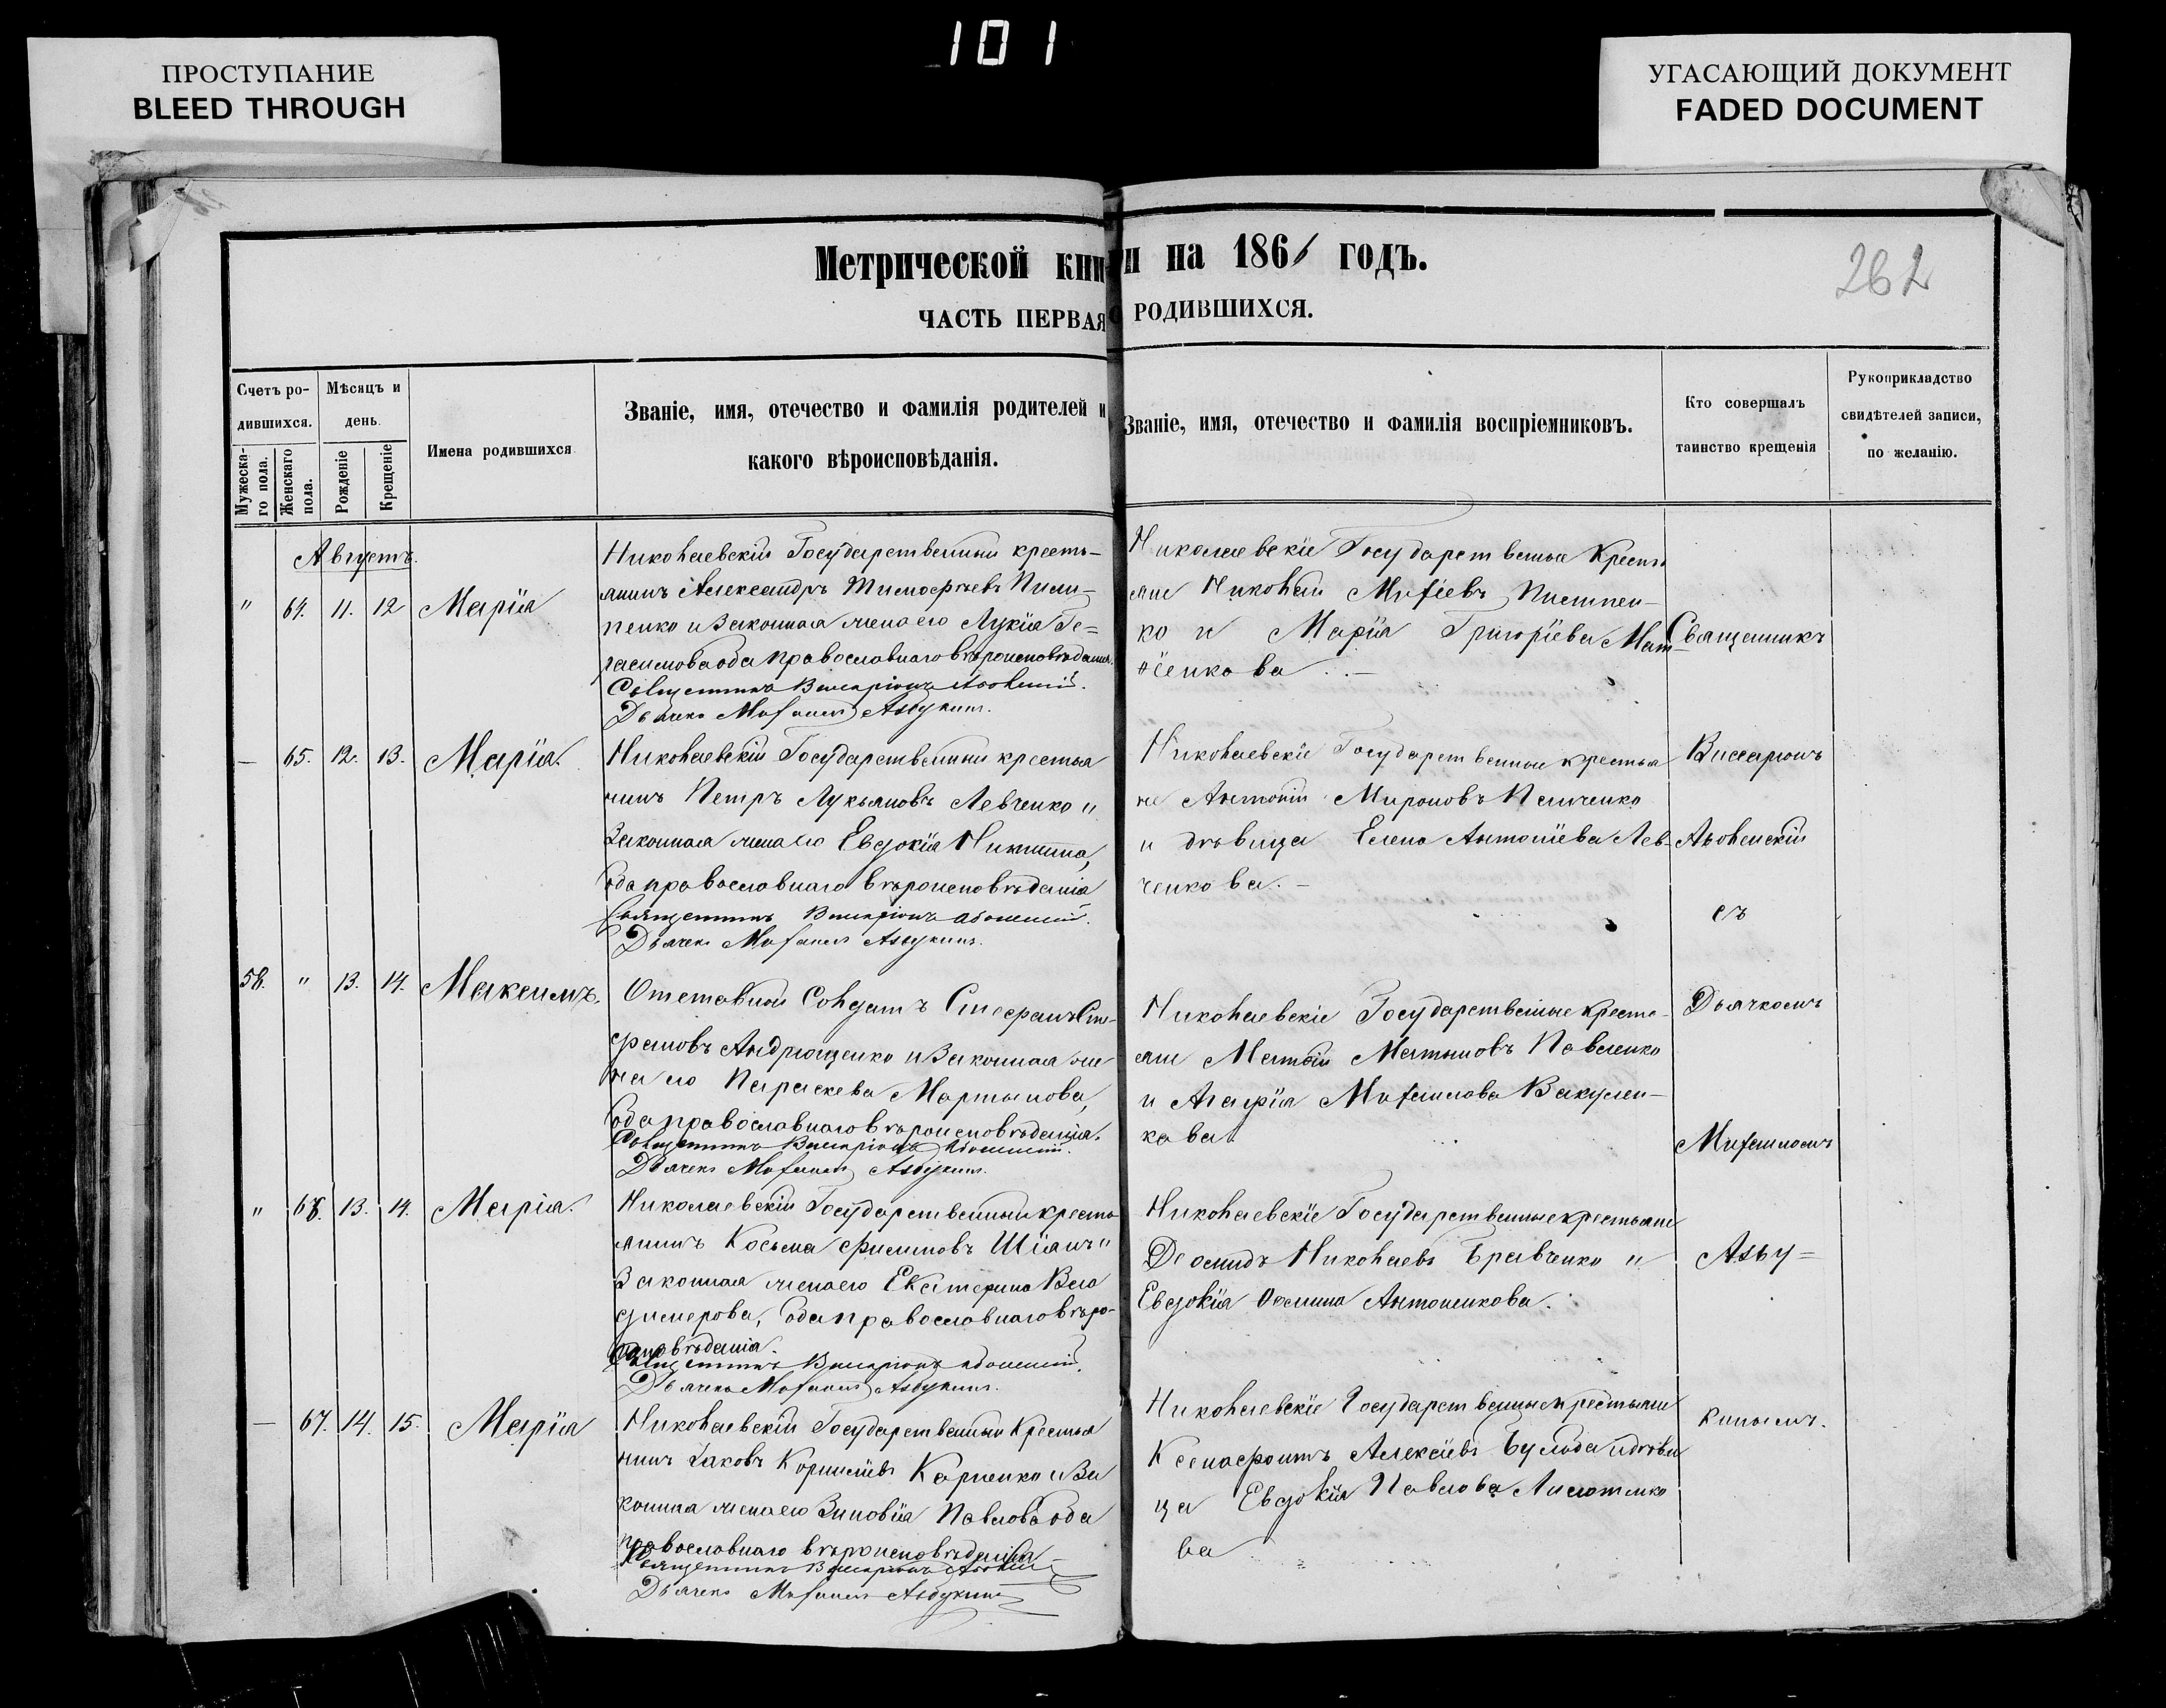 101
ПРОСТУПАНИЕ
BLEED THROUGH
УГАСАЮЩИЙ ДОКУМЕНТ
FADED DOCUMENT
Метрической книги на 1866 годъ.
262
ЧАСТЬ ПЕРВАЯ О РОДИВШИХСЯ.
Счетъ ро-
дившихся.
Мужеска-
го пола.
Женскаго
пола.
Мѣсяцъ и
день.
Рожденіе
Крещеніе
Имена родившихся
Званіе, имя, отечество и фамилія родителей и
какого вѣроисповѣданія.
Званіе, имя, отечество и фамилія воспріемниковъ.
Кто совершалъ
таинство крещенія
Рукоприкладство
свидѣтелей записи,
по желанію.
Августъ.
" 64. 11. 12 Марїа
Николаевскій Государственный кресть-
янинъ Александръ Тимофѣевъ Пили-
пенко и Законная жена его Лукїа Ге-
расимова оба православнаго вѣроисповѣданія.
Священникъ Виссаріонъ
Дьячекъ Михаилъ Азбукинъ.
Николаевскіе Государственные Крестья
не Николай
ко и Марїа Григорїева Мат
ѳѣенкова.
Священникъ
— 65. 12. 13. Марїа.
Николаевскій Государственный крестья
нинъ Петръ Лукьяновъ Левченко и
Законная жена его Евдокїа Никитина,
оба православнаго вѣроисповѣданія
Священникъ Виссаріонъ
Дьячекъ Михаилъ Азбукинъ.
Николаевскіе Государственные крестья
не Антоній Мироновъ
и дѣвица Елена Антонїева Лев-
ченкова.—
Виссаріонъ
съ
58. " 13. 14. Максимъ.
Отставной Солдатъ Стефанъ Сте-
фановъ Андрющенко и Законная же
на его Параскева Мартынова,
оба православнаго вѣроисповѣданія.
Священникъ Виссаріонъ
Дьячекъ Михаилъ Азбукинъ.
Николаевскіе Государственные кресть-
яне Павленко
и Агафїа Михайлова Вакулен-
кова.
Дьячкомъ
Михаиломъ
" 66. 13. 14. Марїа.
Николаевскій Государственный кресть
янинъ Косьма Филиповъ и
Законная жена его Екатерина Вла
димерова, оба православнаго вѣро-
исповѣданія.
Священникъ Виссаріонъ
Дьячекъ Михаилъ Азбукинъ.
Николаевскіе Государственные крестьяне
Деомидъ Николаевъ Кравченко и
Евдокїа Антоненкова.
Азбу=
— 67. 14. 15. Марїа
Николаевскій Государственный Крестья
нинъ Іаковъ Корнилїевъ Карпенко и За
конная жена его Зиновїа Павлова оба
православнаго вѣроисповѣданія
Священникъ Виссаріонъ
Дьячекъ Михаилъ Азбукинъ
Николаевскіе Государственные крестьяне
Ксенофонтъ Алексїевъ и дѣви
ца Евдокїа Павлова
ва
кинымъ.